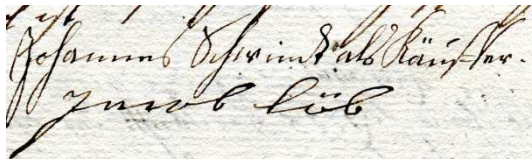 Johannes Schwindt als Käuffer.
Jacob Löb